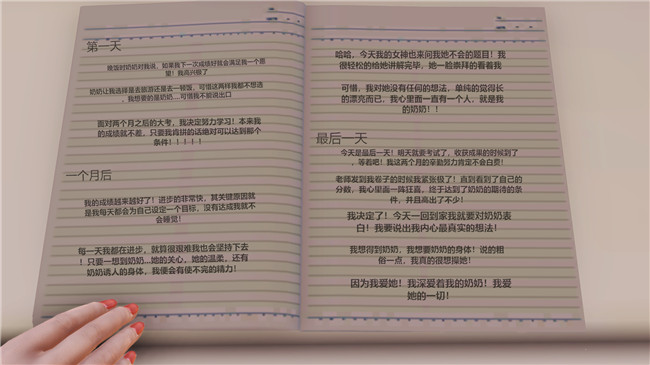 第一天
晚饭时奶奶对我说，如果我下一次成绩好就会满足我一个愿
望！我高兴极了
奶奶让我选择是去旅游还是去一顿饭，可惜这两样我都不想选
，我想要的是奶奶...可惜我不能说出口
面对两个月之后的大考，我决定努力学习！本来我
的成绩就不差，只要我肯拼的话绝对可以达到那个
条件！！！！！
一个月后
我的成绩越来越好了！进步的非常快，其关键原因就
是我每天都会为自己设定一个目标，没有达成我就不
会睡觉！
每一天我都在进步，就算很艰难我也会坚持下去
！只要一想到奶奶...她的关心，她的温柔，还有
奶奶诱人的身体，我便会有使不完的精力！
哈哈，今天我的女神也来问我她不会的题目！我
很轻松的给她讲解完毕，她一脸崇拜的看着我
可惜，我对她没有任何的想法，单纯的觉得长
的漂亮而已，我心里面一直有一个人，就是我
的奶奶！！
最后一天
今天是最后一天！明天就要考试了，收获成果的时候到了
，等着吧！我这两个月的辛勤努力肯定不会白费！
老师发到我卷子的时候我紧张极了！直到看到了自己的
分数，我心里面一阵狂喜，终于达到了奶奶的期待的条
件，并且高出了不少！
我决定了！今天一回到家我就要对奶奶表
白！我要说出我内心最真实的想法！
我想得到奶奶，我想要奶奶的身体！说的粗
俗一点，我真的很想操她！
因为我爱她！我深爱着我的奶奶！我爱
她的一切！